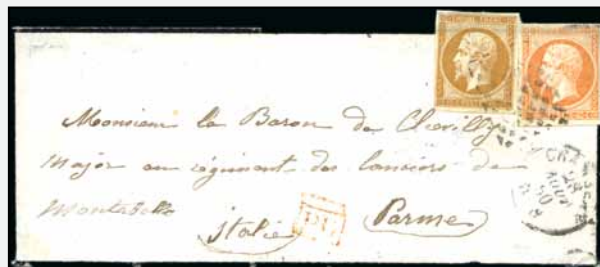 Monsieur le Baron de Chevilly
Major au régiment des lanciers de
Montebello
Italie Parme
PD